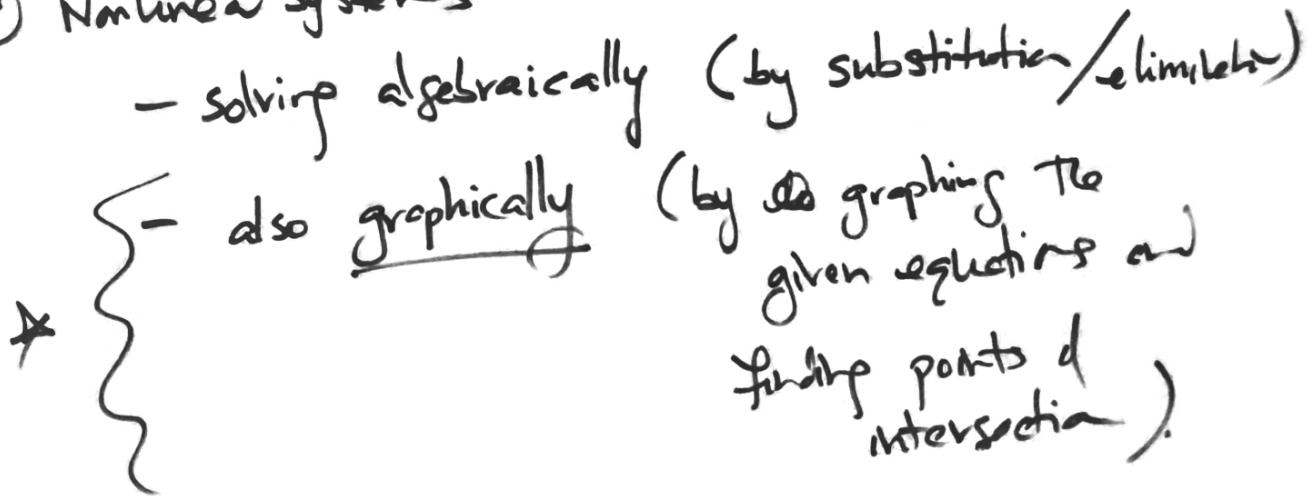 ) Nonlinear systems
- solving algebraically (by substitution/elimination)
- also graphically (by graphing the
given equations and
finding points of
intersection).